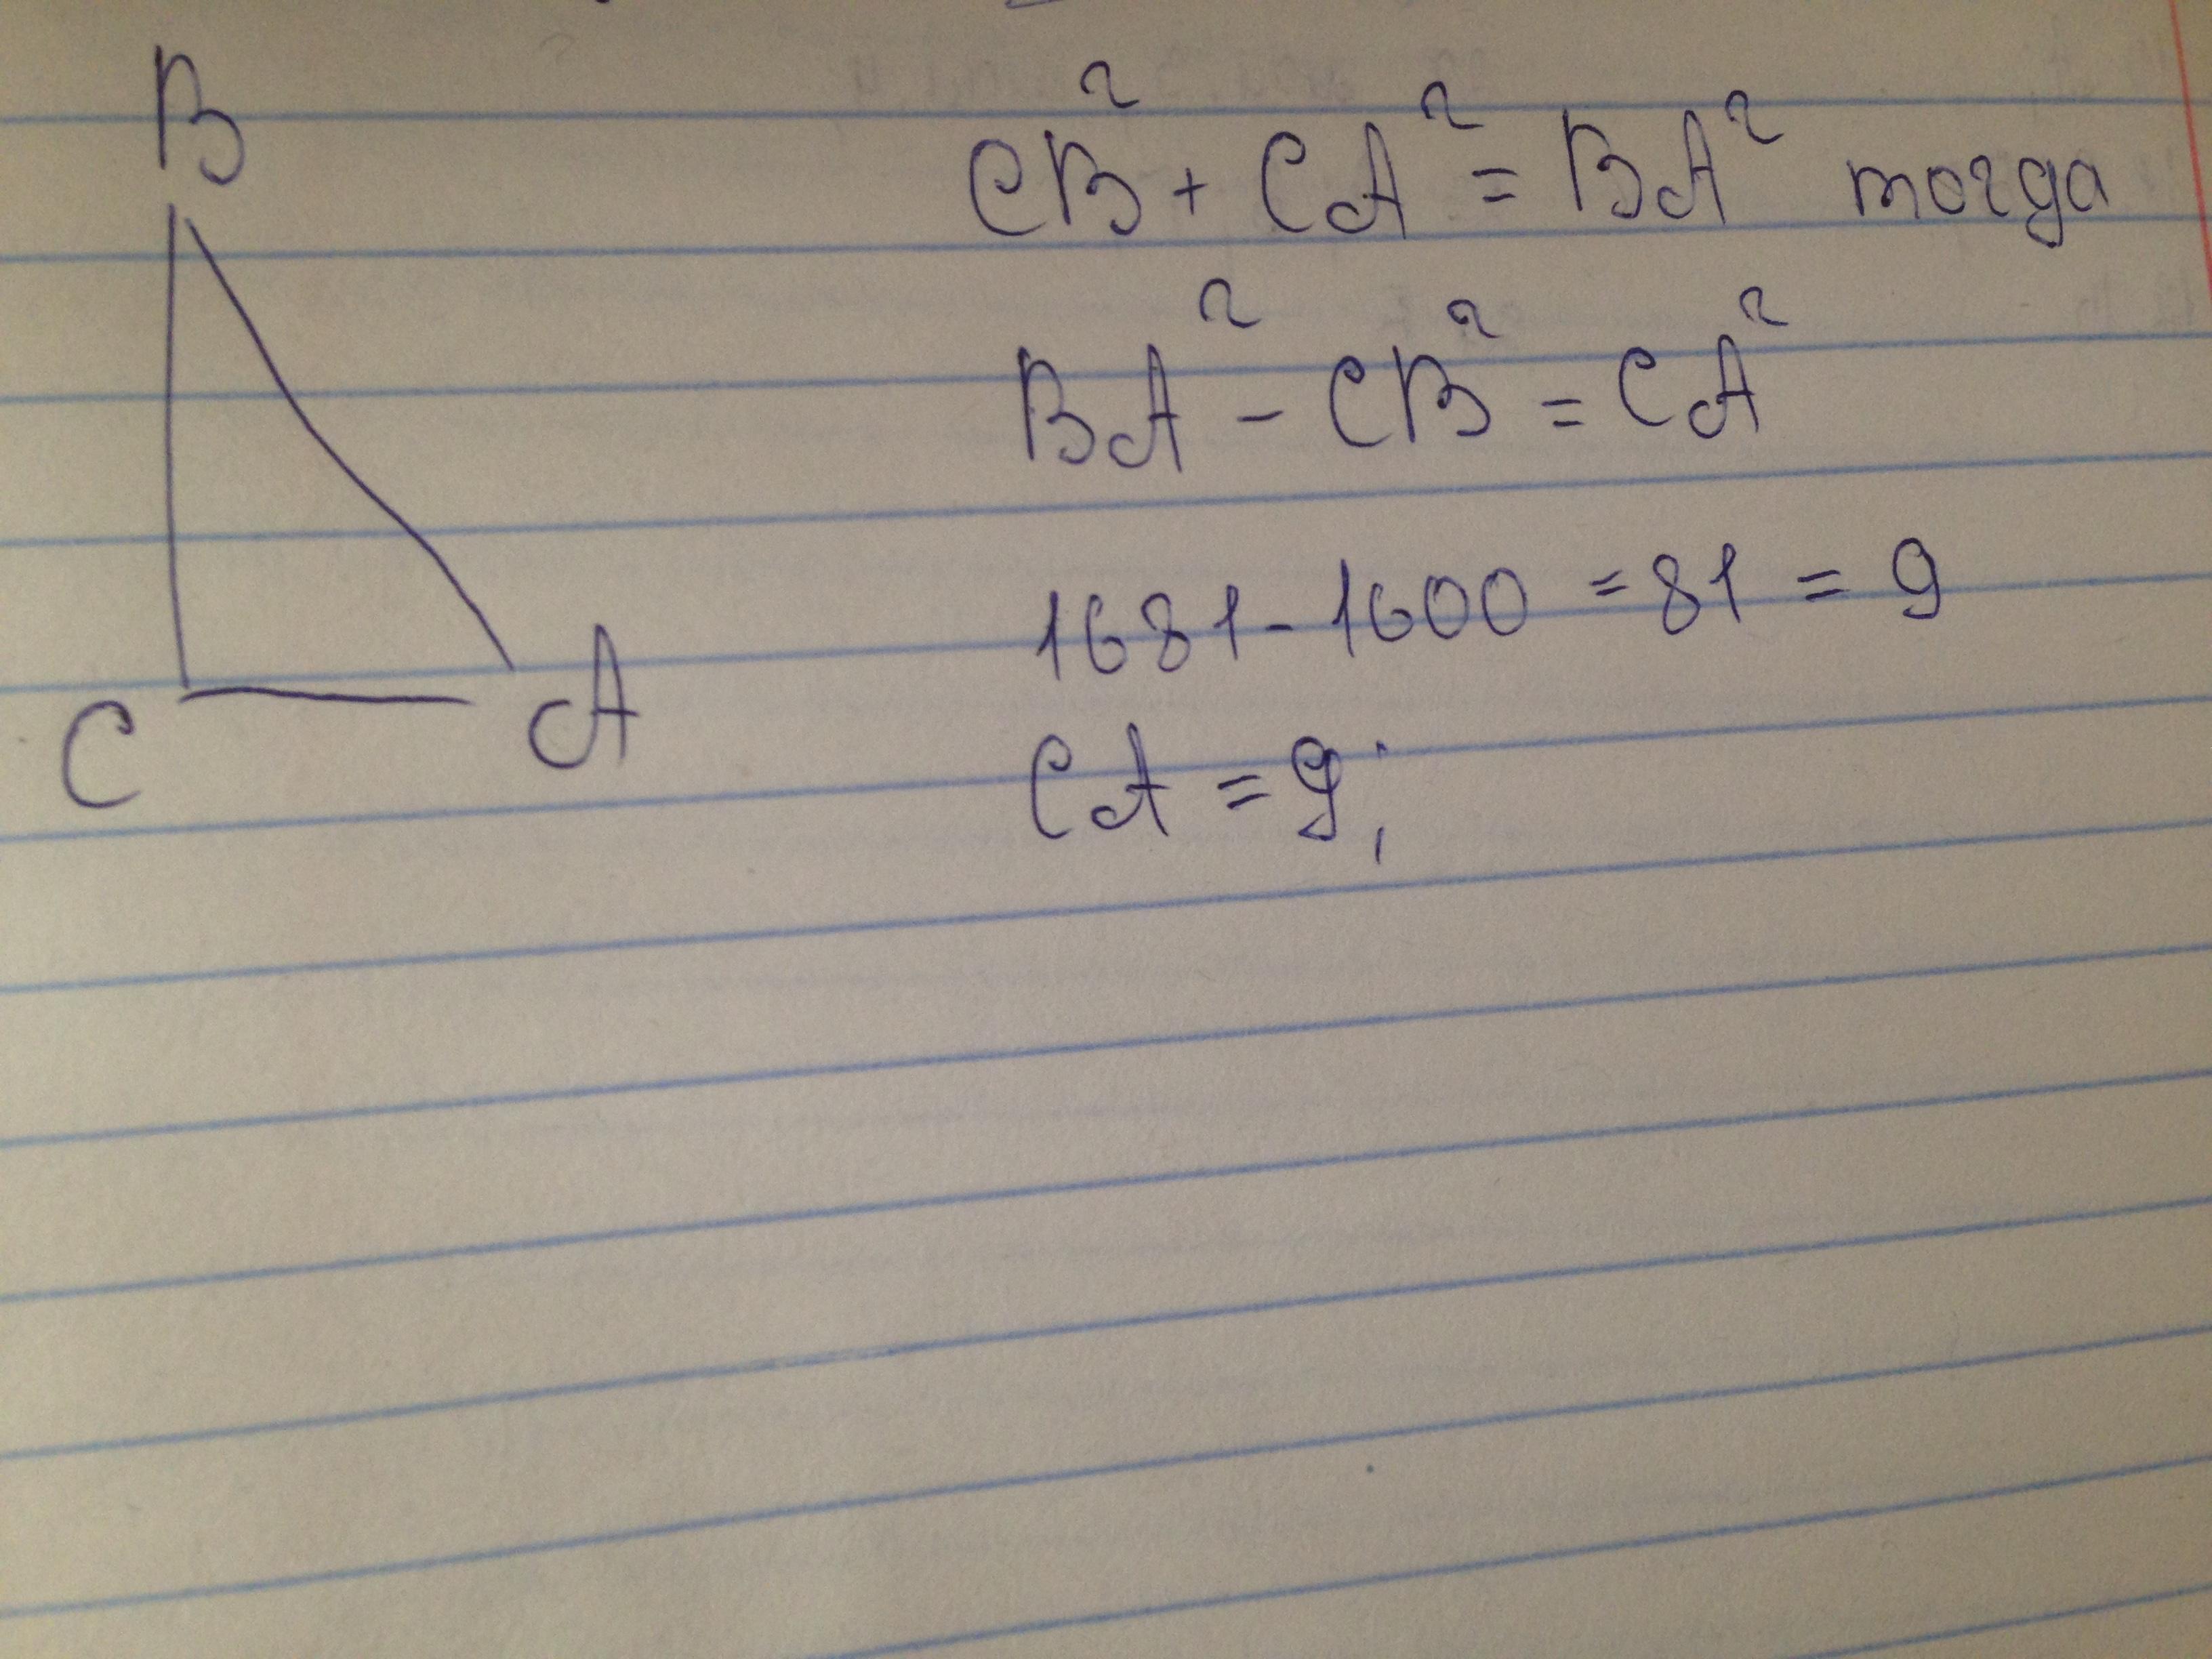 B
C A
CB² + CA² = BA² тогда
BA² - CB² = CA²
1681 - 1600 = 81 = 9
CA = 9;